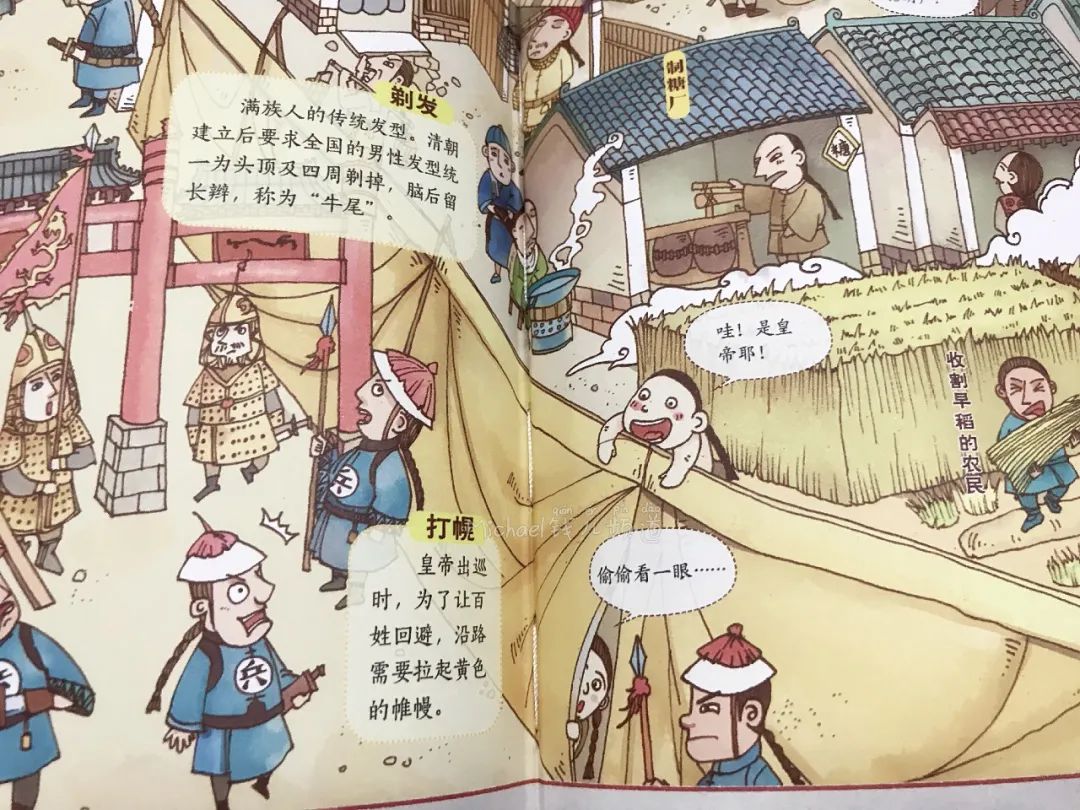 剃发
满族人的传统发型。清朝
建立后要求全国的男性发型统
一为头顶及四周剃掉，脑后留
长辫，称为“牛尾”。
制糖厂
糖
哇！是皇
帝耶！
收割早稻的农民
打幌
皇帝出巡
时，为了让百
姓回避，沿路
需要拉起黄色
的帷幔。
偷偷看一眼……
兵
兵
兵
qián ér pín dào
Michael钱儿频道